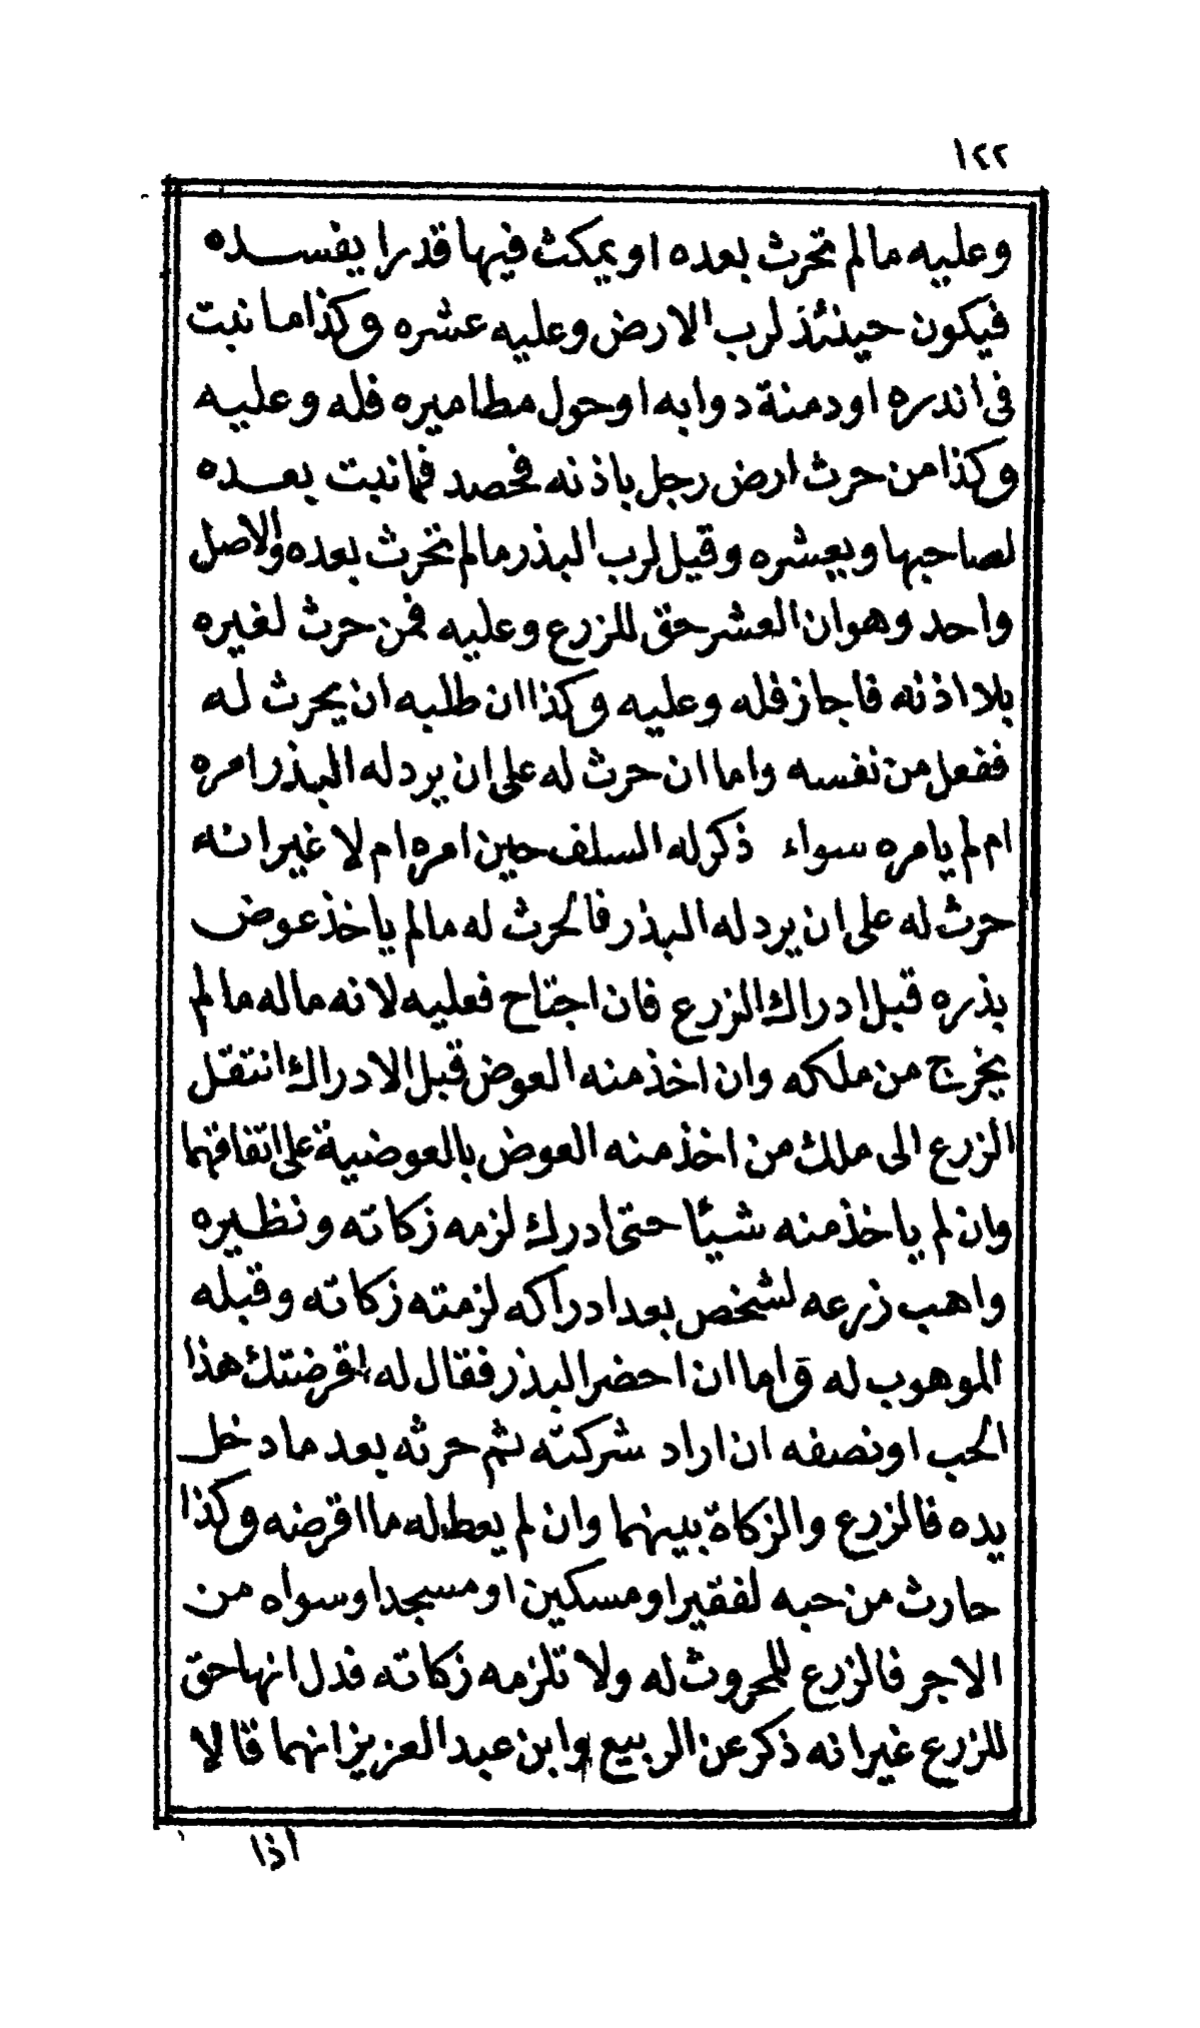 ١٢٢
وعليه مالم تحرث بعده او يمكث فيها قدرا يفسده
فيكون حينئذ لرب الارض وعليه عشره وكذا ما نبت
فى اندره او دمنة دوابه او حول مطاميره فله وعليه
وكذا من حرث ارض رجل باذنه فحصد فما نبت بعده
لصاحبها ويعشره وقيل لرب البذر مالم تحرث بعده والاصل
واحد وهو ان العشر حق للزرع وعليه فمن حرث لغيره
بلا اذنه فاجاز فله وعليه وكذا ان طلبه ان يحرث له
ففعل من نفسه واما ان حرث له على ان يرد له البذر امره
ام لم يامره سواء ذكر له السلف حين امره ام لا غير انه
حرث له على ان يرد له البذر فالحرث له مالم ياخذ عوض
بذره قبل ادراك الزرع فان اجتاح فعليه لانه ماله مالم
يخرج من ملكه وان اخذ منه العوض قبل الادراك انتقل
الزرع الى ملك من اخذ منه العوض بالعوضية على اتفاقهما
وان لم ياخذ منه شيئا حتى ادرك لزمه زكاته ونظيره
واهب زرعه لشخص بعد ادراكه لزمته زكاته وقبله
الموهوب له ق اما ان احضر البذر فقال له اقرضتك هذا
الحب او نصفه ان اراد شركته ثم حرثه بعد ما دخل
يده فالزرع والزكاة بينهما وان لم يعط له ما اقرضه وكذا
حارث من حبه لفقير او مسكين او مسجد او سواه من
الاجر فالزرع للمحروث له ولا تلزمه زكاته فدل انها حق
للزرع غير انه ذكر عن الربيع وابن عبد العزيز انهما قالا
اذا